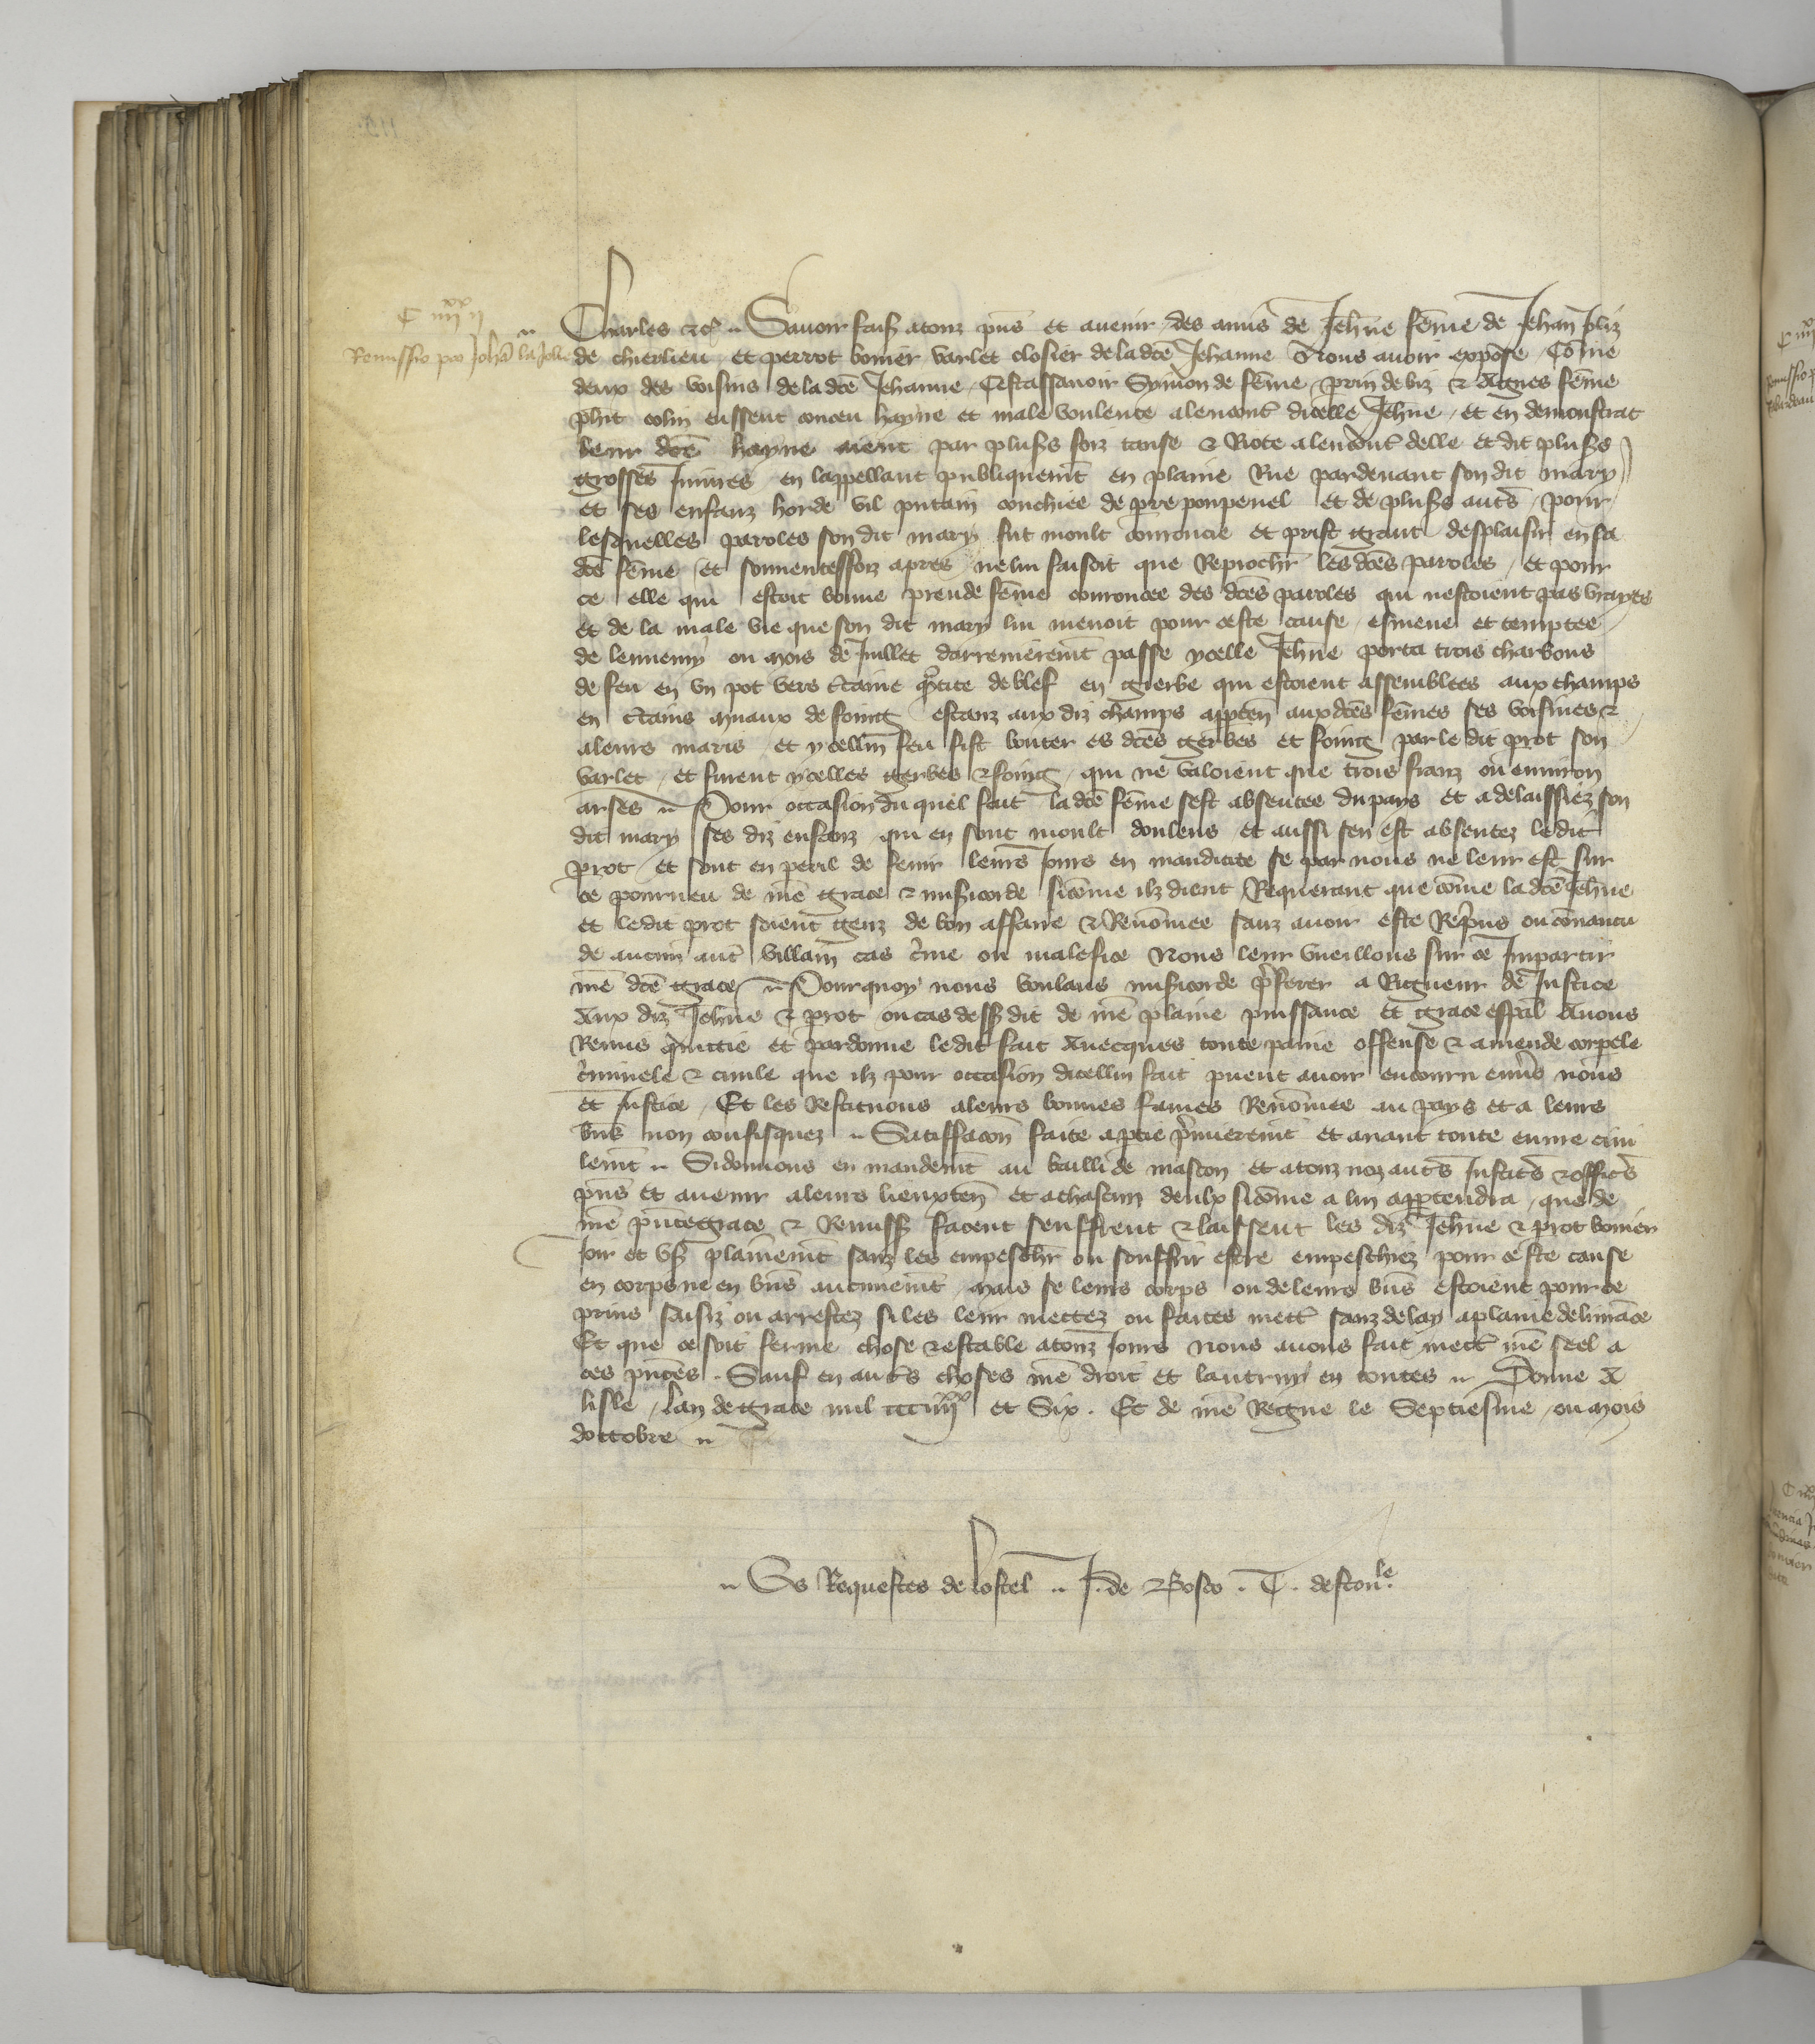 C iiii xx ii
Remissio pro Joha la Jolie
Charles etc. Savoir fais a touz pns et avenir des amis de Jehne feme de Jehan Joliz
de chierlieu et perrot bonier varlet closier de la dce Jehanne Nous avoir expose Come
deux des voisins de la dce Jehanne Cestassavoir Symon de feme prin de biz & Agnes feme
phit colin eussent conceu hayne et male voulente alencont dicelle Jehne et en demonstrat
leur dce hayne aient par plus fois tense & Riote alencont delle et dit plus
grosses Iniures en lappellant publiquemt en plaine Rue pardevant son dit mary
et ses enfanz horde vil putain conchiee de pre poupenel et de plus auts pour
lesquelles paroles son dit mary fut moult couroucie et prist grant desplaisir en sa
dce feme et souventesfoiz apres ne lui faisoit que Reprochr les dces paroles et pour
ce elle qui estoit bonne preude feme couroucee des dces paroles qui nestoient pas vrayes
et de la male vie que son dit mary lui menoit pour ceste cause esmeue et temptee
de lennemy ou mois de Juillet darrenieremt passe ycelle Jehne porta trois charbons
de feu en un pot vers ctaine qtite de blef en gerbe qui estoient assemblees aux champs
en ctains muaux de foing estanz aux diz champs apptn aux dces femes ses voisines &
a leurs maris et ycellui feu fist bouter es dces gerbes et foing par le dit prot son
varlet et furent ycelles gerbes & foing qui ne valoient que trois franz ou environ
arses Pour occasion du quel fait la dce feme sest absentee du pays et a delaissiez son
dit mary ses diz enfanz qui en sont moult doulens et aussi sen est absentez le dit
prot et sont en peril de fenir leurs jours en mandicite se par nous ne leur est sur
ce pourveu de nre grace & misicorde sicome ilz dient Requerant que come la dce Jehne
et le dit prot soient genz de bon affaire & Renomee sanz avoir este Reprins ou convaincu
de aucun aut villain cas cime ou malefice Nous leur vueillons sur ce Impartir
nre dce grace Pourquoy nous voulans misicorde pferer a Rigueur de Justice
Aux diz Jehne & prot ou cas dess dit de nre plaine puissance et grace espal Avons
Remis quittie et pardonne le dit fait Avecques toute paine offense & amende corpele
ciminele & civile que ilz pour occasion dicellui fait puent avoir encouru envs nous
et Justice Et les Restituons a leurs bonnes fames Renomee au pays et a leurs
bns non confisquez Satiffacon faite a ptie pmieremt et avant toute euvre civi
lemt Sidonnons en mandemt au bailli de mascon et a touz noz auts Justics & offics
pns et avenir a leurs lieuxten et a chascun deulx sicome a lui apptendra que de
nre pnte grace & Remiss facent seuffrent & laissent les diz Jehne & prot bonier
joir et us plainemt sanz les empeschr ou souffrir estre empeschiez pour ceste cause
en corps ne en bns aucunemt mais se leurs corps ou de leurs bns estoient pour ce
prins saisiz ou arrestez si les leur mettez ou faites mett sanz delay a plaine delivrace
Et que ce soit ferme chose & estable a touz jours nous avons fait mett nre seel a
ces pntes. Sauf en auts choses nre droit et lautruy en toutes Donne A
lisle lan de grace mil ccciiii xx et Six. Et de nre Regne le Septiesme ou mois
doctobre
Es Requestes de lostel J. de Bosco. T. destoule.